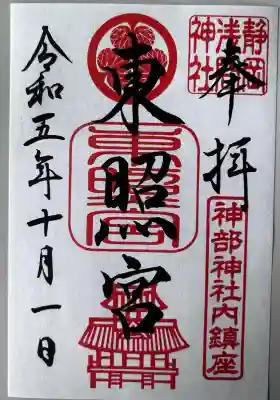 奉拝
静岡浅間神社
神部神社内鎮座
東照宮
東照宮
令和五年十月一日